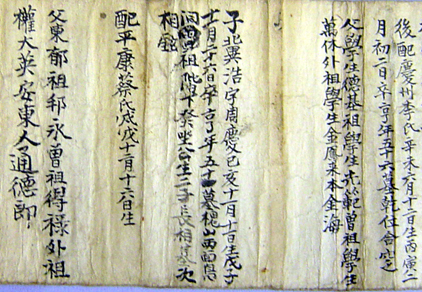 後配慶州李氏辛未六月十二日生丙寅二
月初二日卒亨年五十六墓乾位合窆
父學生德基祖學生光範曾祖學生
萬休外祖學生金鷹來本金海
子北巽浩字周慶己亥十月十日生戊子
十一月二十六日卒亨年五十墓槐山西面鳥
洞曾祖 癸坐 生二子長相 次
相鉉
配平康蔡氏戊戌十二月十六日生
父東郁祖邦永曾祖得祿外祖
權大英安東人通德郎